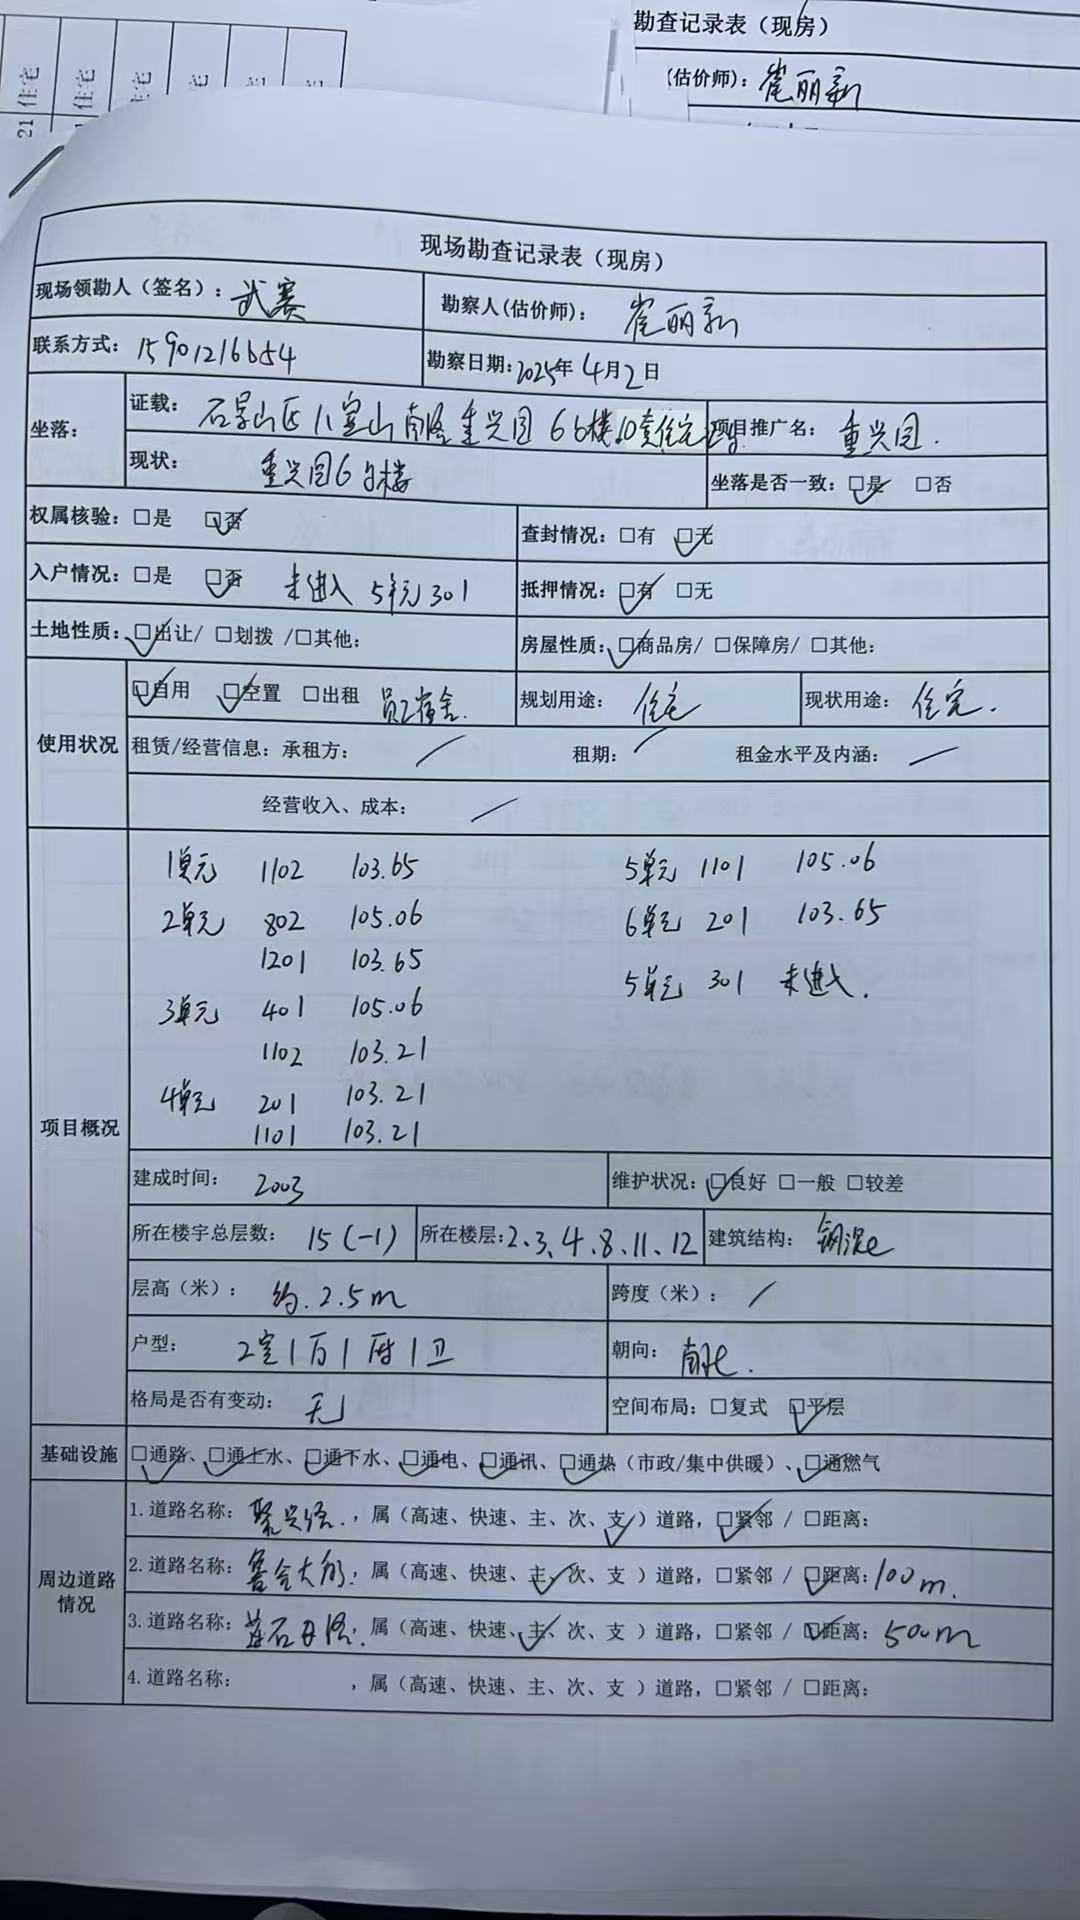 勘查记录表（现房）
(估价师): 崔丽新
21 住宅
住宅
住宅
现场勘查记录表（现房）
现场领勘人（签名）: 武赛 勘察人(估价师): 崔丽新
联系方式: 15901216654 勘察日期: 2025年 4月2日
坐落: 证载: 石景山区八宝山南路重兴园6号楼10套住宅 项目推广名: 重兴园.
现状: 重兴园6号楼 坐落是否一致: ☑是 □否
权属核验: □是 ☑否 查封情况: □有 ☑无
入户情况: □是 ☑否 未进入 5单元301 抵押情况: ☑有 □无
土地性质: ☑出让/ □划拨 /□其他: 房屋性质: ☑商品房/ □保障房/ □其他:
使用状况 ☑自用 ☑空置 □出租 员工宿舍. 规划用途: 住宅 现状用途: 住宅.
租赁/经营信息: 承租方: / 租期: / 租金水平及内涵: /
经营收入、成本: /
项目概况
1单元 1102 103.65 5单元 1101 105.06
2单元 802 105.06 6单元 201 103.65
1201 103.65 5单元 301 未进入.
3单元 401 105.06
1102 103.21
4单元 201 103.21
1101 103.21
建成时间: 2003 维护状况: ☑良好 □一般 □较差
所在楼宇总层数: 15(-1) 所在楼层: 2、3、4、8、11、12 建筑结构: 钢混
层高（米）: 约.2.5m 跨度（米）: /
户型: 2室1厅1厨1卫 朝向: 南北.
格局是否有变动: 无 空间布局: □复式 ☑平层
基础设施 ☑通路、☑通上水、☑通下水、☑通电、☑通讯、☑通热（市政/集中供暖）、☑通燃气
周边道路情况 1.道路名称: 聚兴路., 属（高速、快速、主、次、支✓）道路, ☑紧邻 / □距离:
2.道路名称: 鲁谷大街, 属（高速、快速、主✓、次、支 ）道路, □紧邻 / ☑距离: 100m.
3.道路名称: 莲石东路, 属（高速、快速、主✓、次、支 ）道路, □紧邻 / ☑距离: 500m
4.道路名称: , 属（高速、快速、主、次、支 ）道路, □紧邻 / □距离: